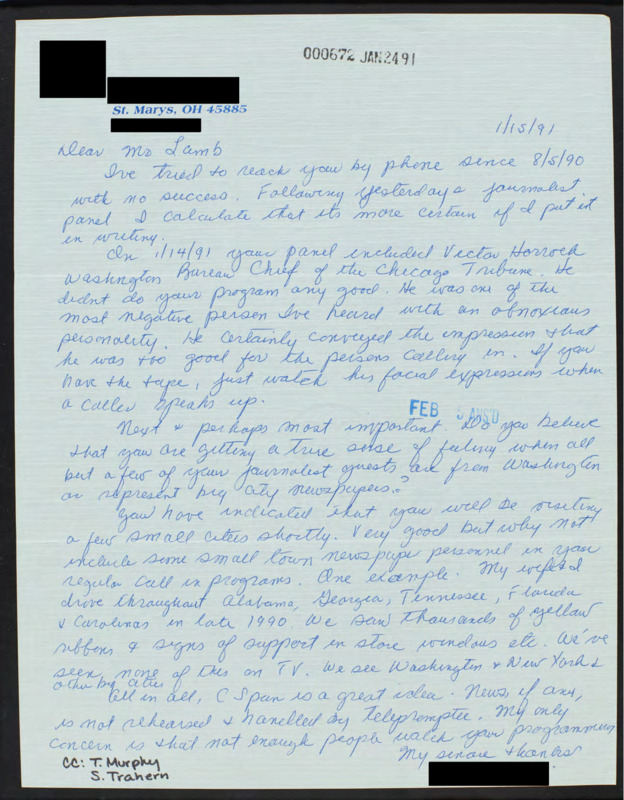 000672 JAN 24 91
St. Marys, OH 45885
1/15/91
Dear Mr Lamb
I've tried to reach you by phone since 8/5/90
with no success. Following yesterdays journalist
panel I calculate that its more certain if I put it
in writing.
On 1/14/91 your panel included Victor Horrock
Washington Bureau Chief of the Chicago Tribune. He
didnt do your program any good. He was one of the
most negative person I've heard with an obnoxious
personality. He certainly conveyed the impression that
he was too good for the persons calling in. If you
have the tape, just watch his facial expressions when
a caller speaks up.
FEB 5 ANS'D
Next & perhaps most important. Do you believe
that you are getting a true sense of feeling when all
but a few of your journalist guests are from Washington
or represent big city newspapers.?
You have indicated that you will be visiting
a few small cities shortly. Very good but why not
include some small town newspaper personnel in your
regular call in programs. One example. My wife & I
drove throughout Alabama, Georgia, Tennessee, Florida
& Carolinas in late 1990. We saw thousands of yellow
ribbons & signs of support in store windows etc. We've
seen none of this on TV. We see Washington & New York &
other big cities
All in all, C Span is a great idea. News, if any,
is not rehearsed & handled by teleprompter. My only
concern is that not enough people watch your programming
My sincere thanks
CC: T. Murphy
S. Trahern